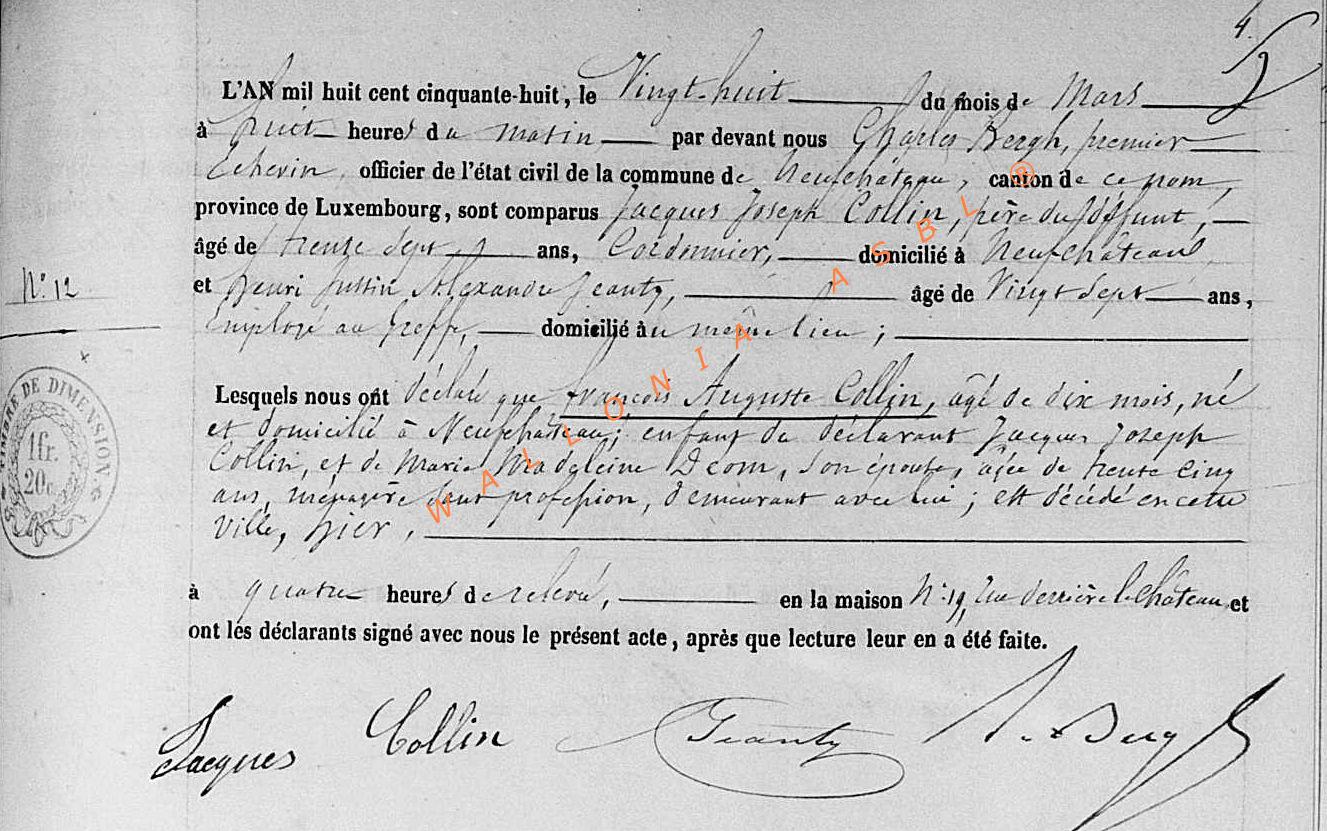 4.
L'AN mil huit cent cinquante-huit, le Vingt-huit du mois de Mars
à huit heures du matin par devant nous Charles Bergh, premier
Echevin, officier de l'état civil de la commune de Neufchâteau, canton de ce nom,
province de Luxembourg, sont comparus Jacques Joseph Collin, père du défunt,
âgé de trente sept ans, Cordonnier, domicilié à Neufchâteau,
N° 12
et Henri Justin Alexandre Jeanty, âgé de Vingt sept ans,
Employé au Greffe, domicilié au même lieu ;
Lesquels nous ont déclaré que françois Auguste Collin, âgé de dix mois, né
et domicilié à Neufchâteau; enfant du déclarant Jacques Joseph
Collin, et de Marie Madeleine Dcom, son épouse, âgée de trente cinq
ans, ménagère sans profession, demeurant avec lui ; est décédé en cette
Ville, hier,
TIMBRE DE DIMENSION
1fr.
20c.
à quatre heures de relevé, en la maison N° 19, Rue derrière le Château et
ont les déclarants signé avec nous le présent acte, après que lecture leur en a été faite.
Jacques Collin Jeanty Bergh
WALLONIA ASBL ®